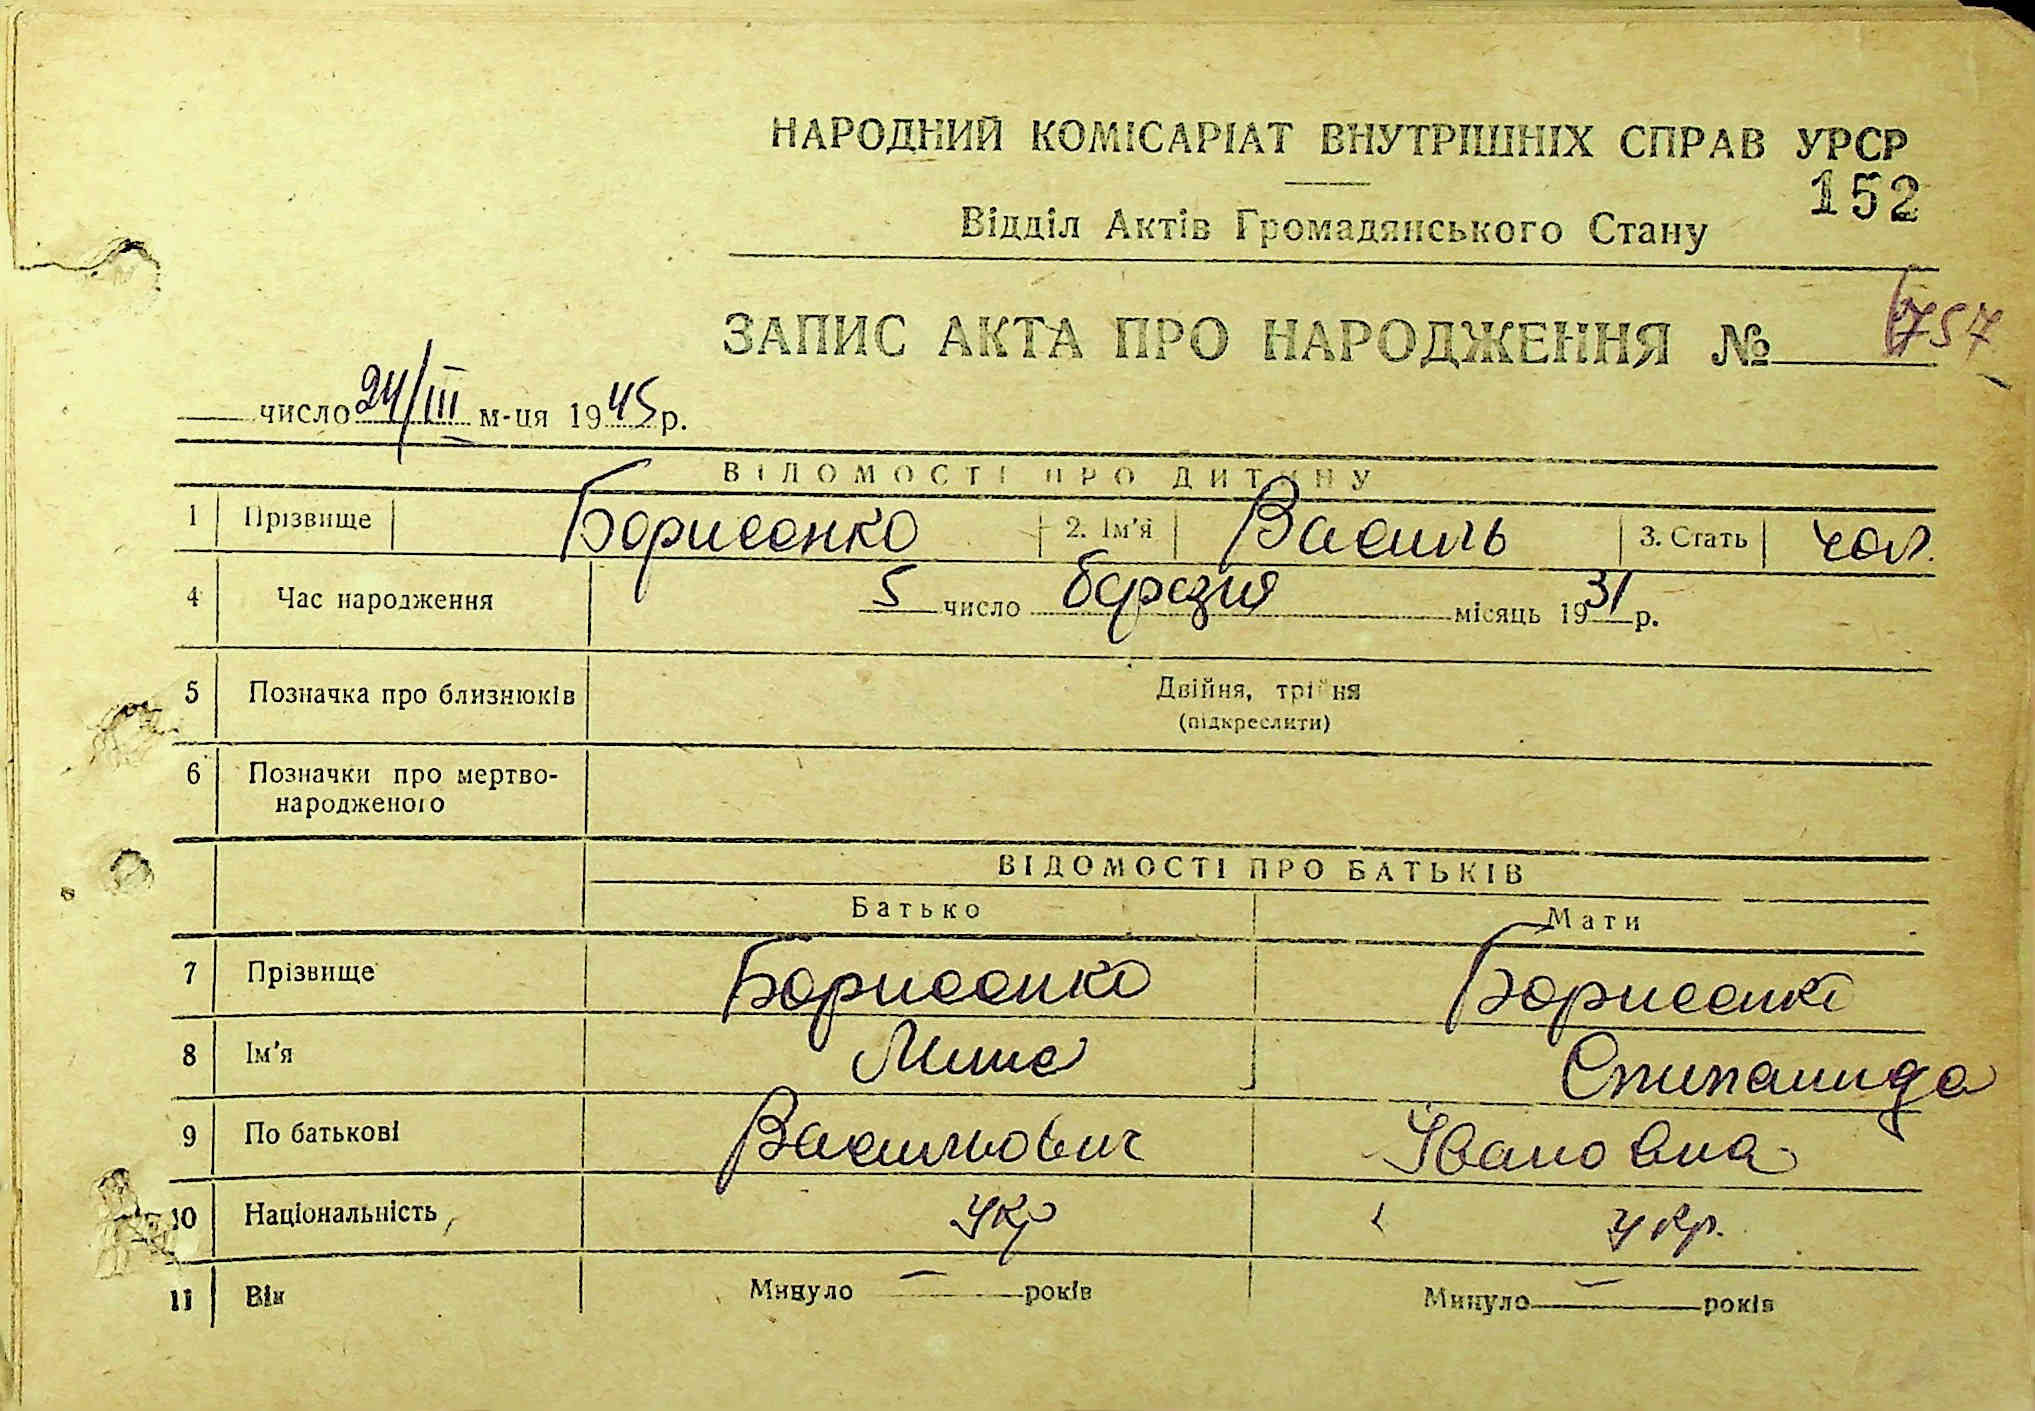 НАРОДНИЙ КОМІСАРІАТ ВНУТРІШНІХ СПРАВ УРСР
152
Відділ Актів Громадянського Стану
ЗАПИС АКТА ПРО НАРОДЖЕННЯ № 757
число 24/III м-ця 1945 р.
ВІДОМОСТІ ПРО ДИТИНУ
1 Прізвище Борисенко 2. Ім'я Василь 3. Стать чол.
4 Час народження 5 число березня місяць 1931 р.
5 Позначка про близнюків Двійня, трійня
(підкреслити)
6 Позначки про мертво-
народженого
ВІДОМОСТІ ПРО БАТЬКІВ
Батько Мати
7 Прізвище Борисенко Борисенко
8 Ім'я Степанида
9 По батькові Васильович Івановна
10 Національність Укр Укр.
11 Вік Минуло — років Минуло — років